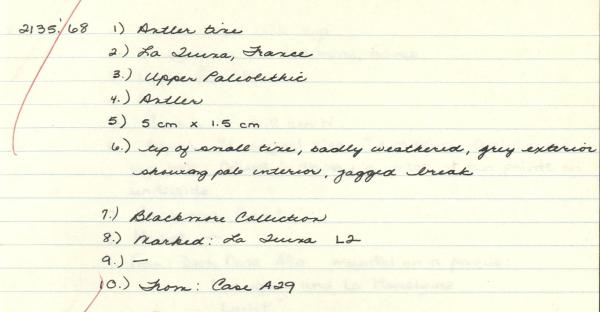 2135.'68 1) Antler tine
2.) La Quina, France
3.) Upper Paleolithic
4.) Antler
5) 5 cm x 1.5 cm
6.) tip of small tine, badly weathered, grey exterior
showing pale interior, jagged break
7.) Blackmore Collection
8.) Marked: La Quina L2
9.) —
10.) From: Case A29